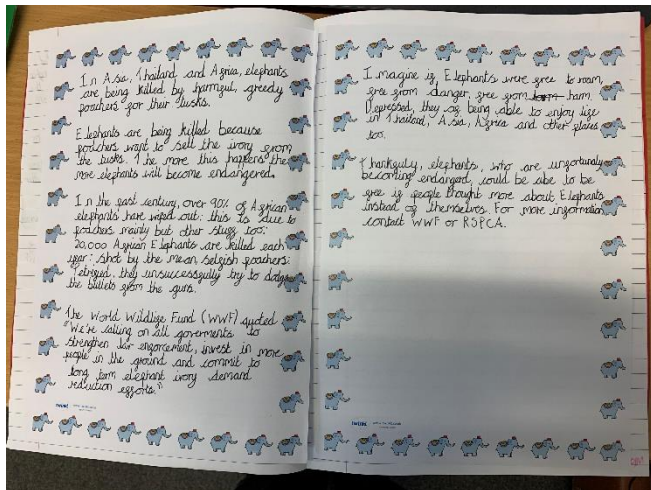 In Asia, Thailand and Africa, elephants
are being killed by harmful, greedy
poachers for their tusks.
Elephants are being killed because
poachers want to sell the ivory from
the tusks. The more this happens, the
more elephants will become endangered.
In the past century, over 90% of African
elephants have wiped out: this is due to
poachers mainly but other stuff too.
20,000 African Elephants are killed each
year: shot by the mean, selfish poachers.
Petrified, they unsuccessfully try to dodge
the bullets from the guns.
The World Wildlife Fund (WWF) quoted
"We're calling on all goverments to
strengthen law enforcement, invest in more
people in the ground and commit to
long term elephant ivory demand
reduction efforts."
twinkl
Imagine if Elephants were free to roam,
free from danger, free from harm.
Depressed, they of being able to enjoy life
in Thailand, Asia, Africa and other places
too.
Thankfully, elephants, who are unfortunaly
becoming endangerd, could be able to be
free if people thought more about Elephants
instead of themselves. For more information
contact WWF or RSPCA.
twinkl